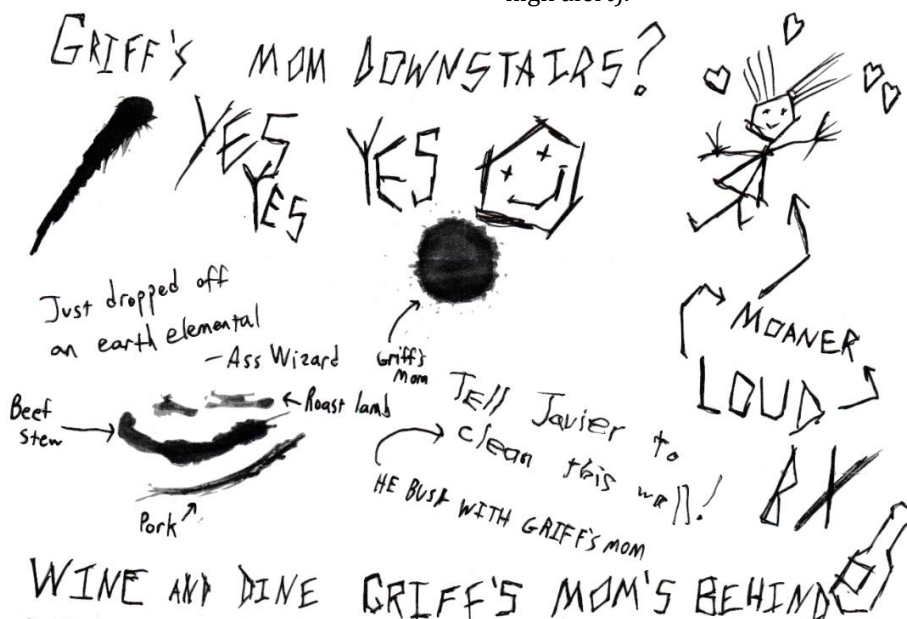 high alert).
GRIFF'S MOM DOWNSTAIRS?
YES YES
YES
Just dropped off
an earth elemental
-Ass Wizard
Griff's
Mom
MOANER
LOUD
Beef
Stew
Roast lamb
Pork
Tell Javier to
clean this wall!
HE BUSY WITH GRIFF'S MOM
BX
WINE AND DINE GRIFF'S MOM'S BEHIND